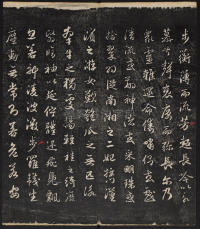 步衡薄而流芳超長吟以永
慕兮聲哀厲而彌長爾乃
衆靈雜遝命儔嘯侶或戲
清流或翔神渚或采明珠或
拾翠羽從南湘之二妃攜漢
濱之游女歎匏瓜之無匹兮詠
牽牛之獨處揚輕袿之綺靡
翳脩袖以延佇體迅飛鳧飄
忽若神陵波微步羅襪生
塵動無常則若危若安